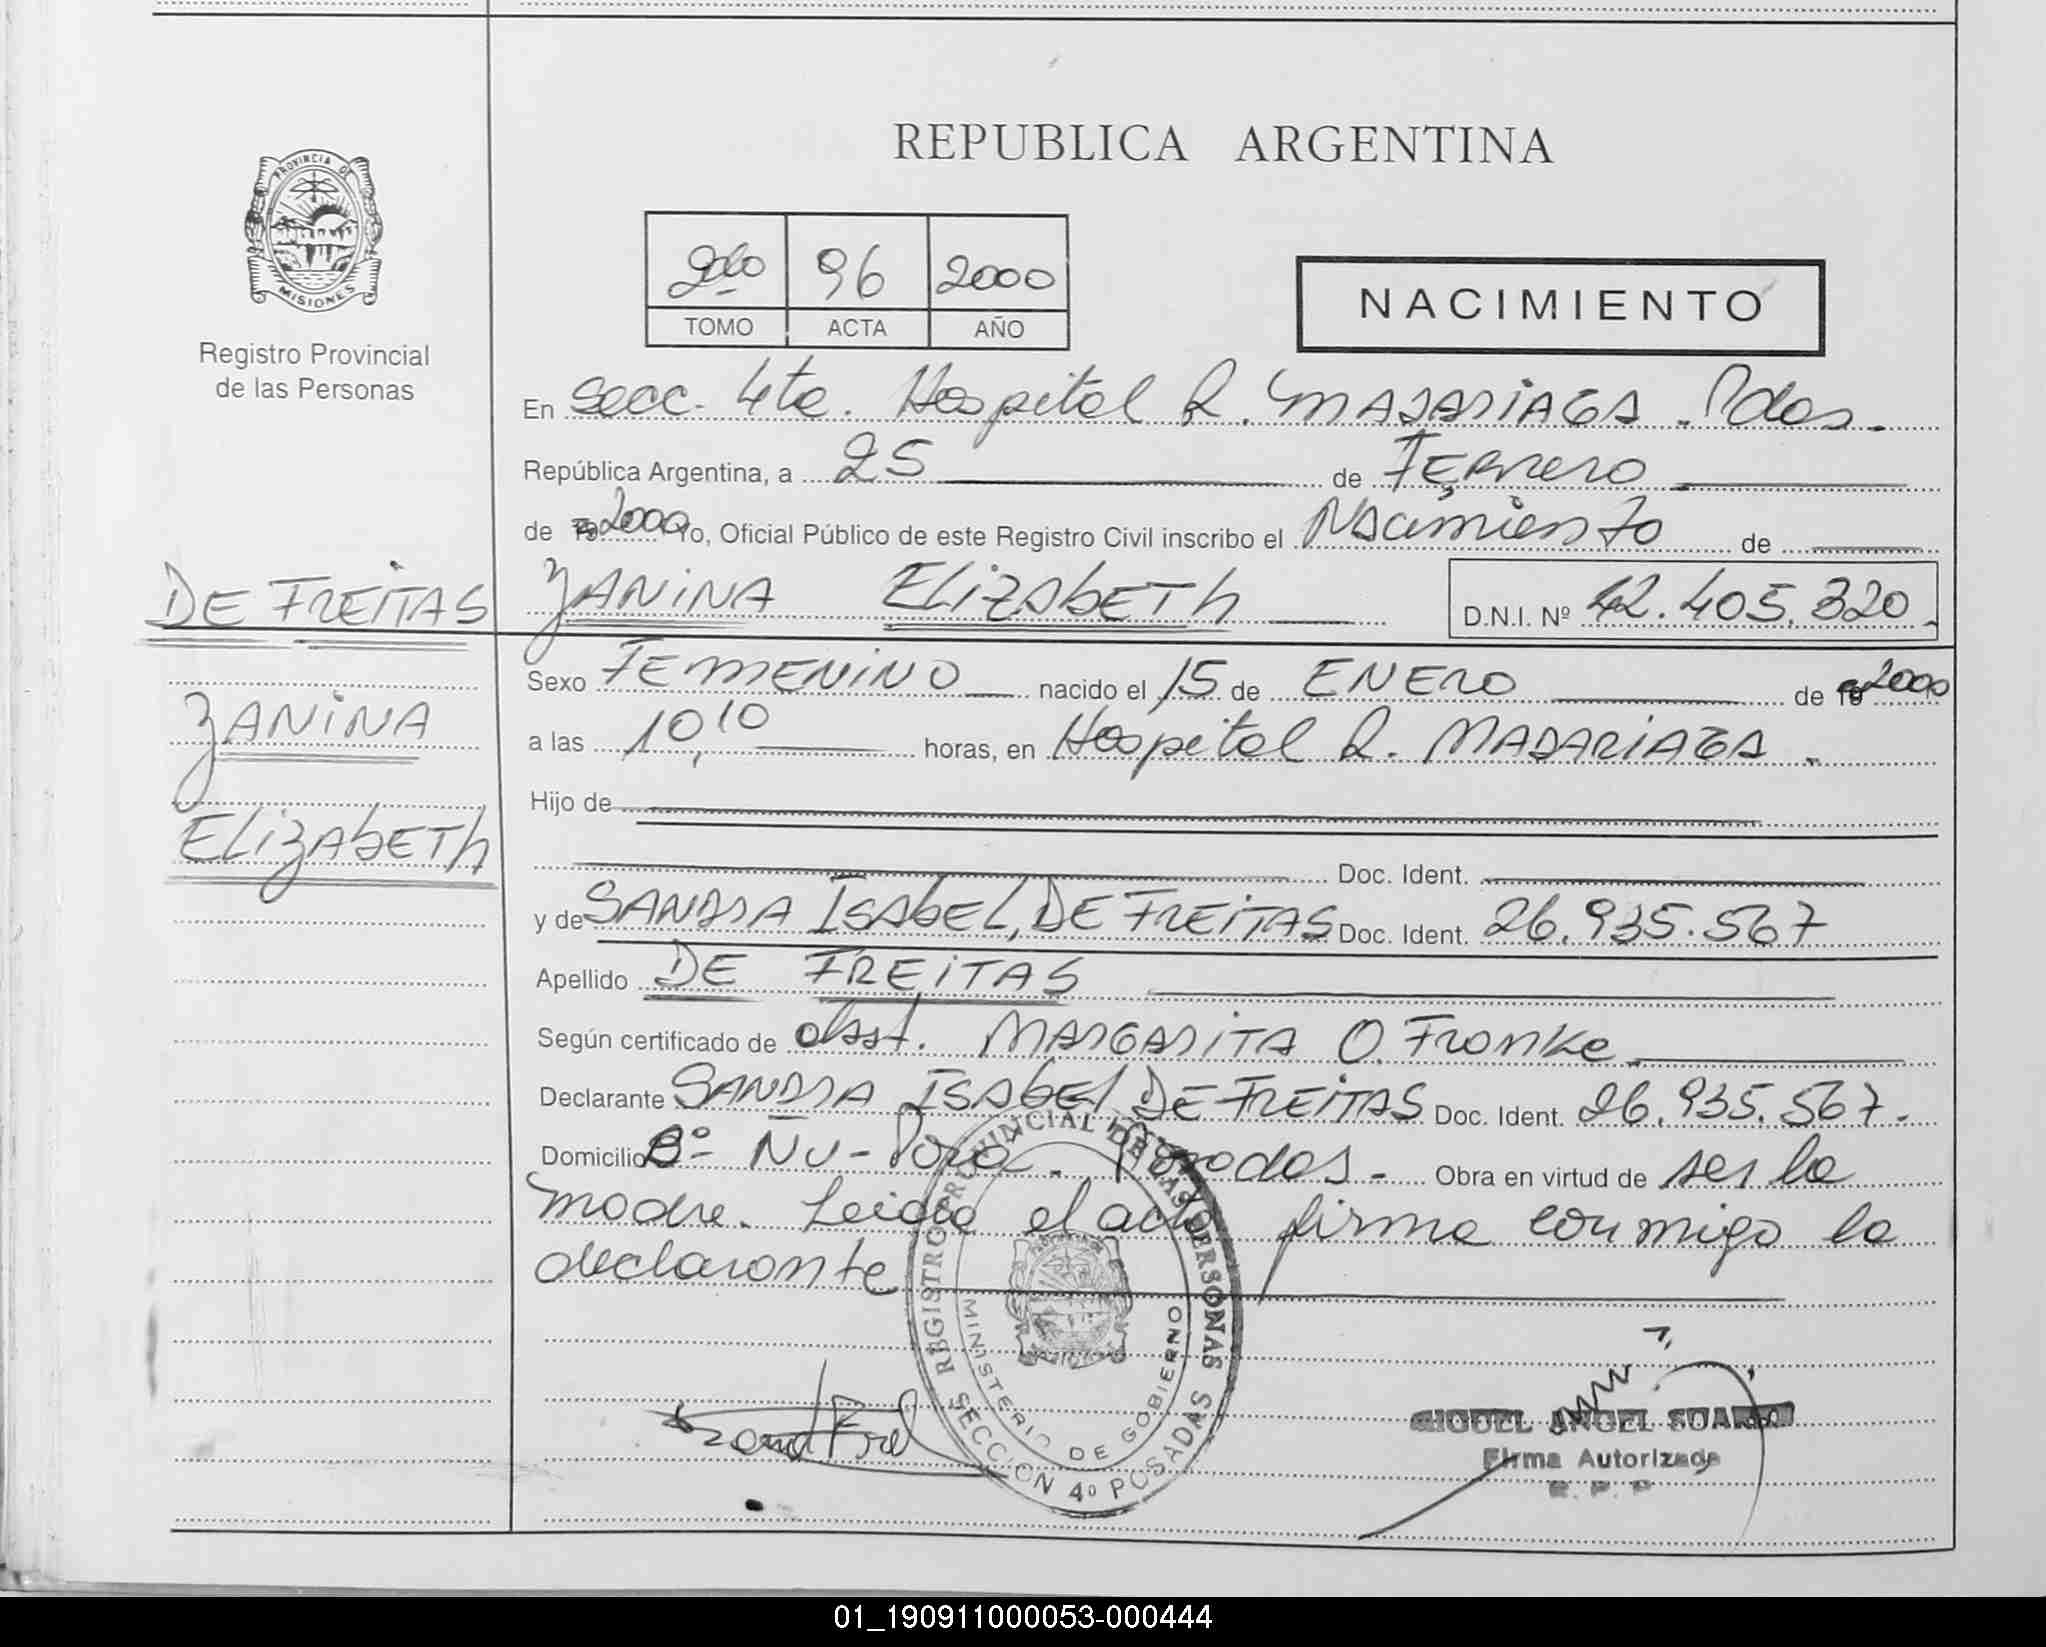 REPUBLICA ARGENTINA
PROVINCIA DE
MISIONES
Registro Provincial
de las Personas
96 2000
TOMO ACTA AÑO
NACIMIENTO
En Secc. 4ta. Hospital R. MADARIAGA. Pdas.
República Argentina, a 25 de FEBRERO
de 19 2000 Yo, Oficial Público de este Registro Civil inscribo el Nacimiento de
DE FREITAS
YANINA ELIZABETH D.N.I. Nº 42.405.320.
Sexo FEMENINO nacido el 15 de ENERO de 19 2000
YANINA
a las 10,10 horas, en Hospital R. MADARIAGA.
Hijo de
ELIZABETH
Doc. Ident.
y de SANDRA ISABEL, DE FREITAS Doc. Ident. 26.935.567
Apellido DE FREITAS
Según certificado de obst. MARGARITA O. Fronke
Declarante SANDRA ISABEL DE FREITAS Doc. Ident. 26.935.567.
Domicilio Bº ÑU-Porá. Posadas. Obra en virtud de ser la
madre. Leida el acta firma conmigo la
declarante
REGISTRO PROVINCIAL DE LAS PERSONAS
MINISTERIO DE GOBIERNO
SECCION 4º POSADAS
MIGUEL ANGEL
Firma Autorizada
R. P. P
01_190911000053-000444